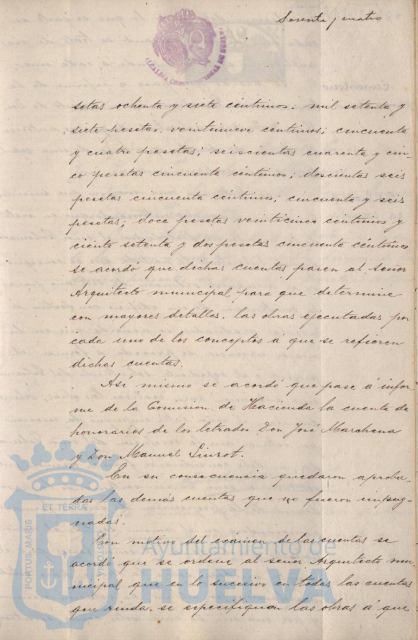 Sesenta y cuatro
setas ochenta y siete céntimos; mil setenta y
siete pesetas, veintinueve céntimos; cincuenta
y cuatro pesetas; seiscientas cuarenta y cin-
co pesetas cincuenta céntimos; doscientas seis
pesetas cincuenta céntimos; cincuenta y seis
pesetas; doce pesetas veinticinco céntimos y
ciento setenta y dos pesetas cincuenta céntimos
se acordó que dichas cuentas pasen al señor
Arquitecto municipal, para que determine
con mayores detalles, las obras ejecutadas por
cada uno de los conceptos a que se refieren
dichas cuentas.
Así mismo se acordó que pase á infor-
me de la Comision de Hacienda la cuenta de
honorarios de los letrados Don José Marchena
y Don Manuel Siurot.
En su consecuencia quedaron aproba-
das las demás cuentas que no fueron impug-
nadas.
Con motivo del examen de las cuentas se
acordó que se ordene al señor Arquitecto mu-
nicipal que en lo sucesivo en todas las cuentas
que rinda, se especifiquen las obras á que
PORTUS MARIS
ET TERRÆ
Ayuntamiento de
HUELVA